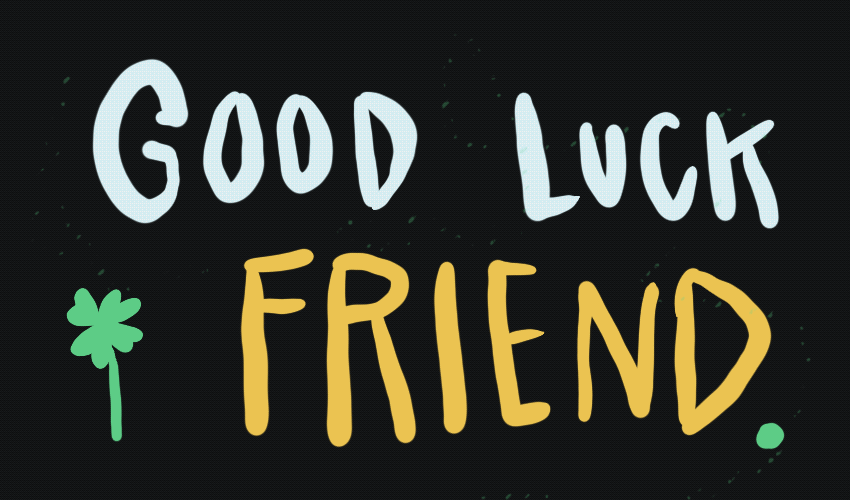 GOOD LUCK
FRIEND.